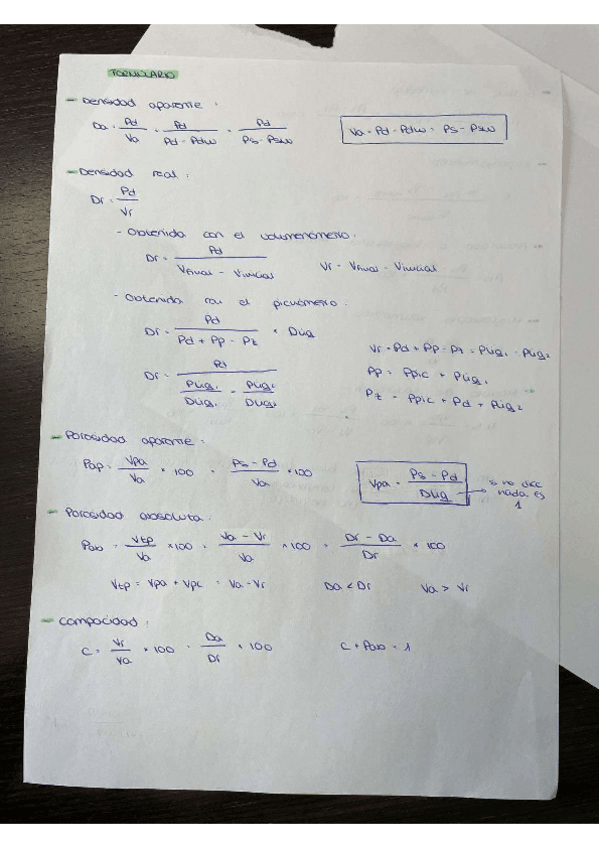 FORMULARIO
- Densidad aparente :
Da = Pd / Va = Pd / (Pd - Pdw) = Pd / (Ps - Psw)
Va = Pd - Pdw = Ps - Psw
- Densidad real :
Dr = Pd / Vr
- Obtenida con el volumenómetro :
Dr = Pd / (Vfinal - Vinicial)
Vr = Vfinal - Vinicial
- Obtenida con el picnómetro :
Dr = Pd / (Pd + Pp - Pt) × Dliq
Dr = Pd / (Pliq1 / Dliq1 - Pliq2 / Dliq2)
Vr = Pd + Pp - Pt = Pliq1 - Pliq2
Pp = Ppic + Pliq1
Pt = Ppic + Pd + Pliq2
- Porosidad aparente :
Pap = Vpa / Va × 100 = (Ps - Pd) / Va × 100
Vpa = (Ps - Pd) / Dliq → si no dice nada, es 1
- Porosidad absoluta :
Pabs = Vtp / Va × 100 = (Va - Vr) / Va × 100 = (Dr - Da) / Dr × 100
Vtp = Vpa + Vpc = Va - Vr
Da < Dr
Va > Vr
- Compacidad :
C = Vr / Va × 100 = Da / Dr × 100
C + Pabs = 1